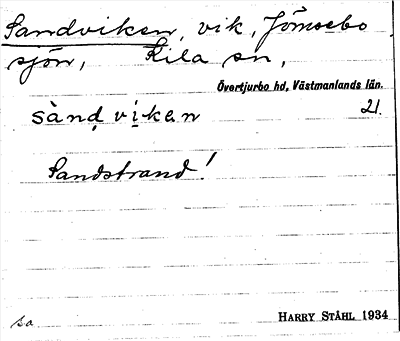 Sandviken, vik, Jömsebo
sjön, Kila sn,
Övertjurbo hd, Västmanlands län.
sànd̥ vi̱ken 21.
Sandstrand!
sa HARRY STÅHL 1934